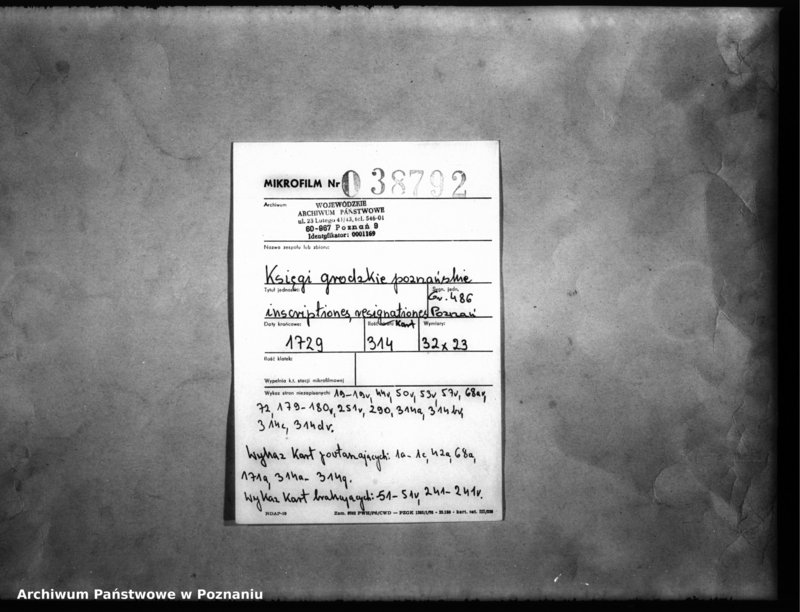 MIKROFILM Nr 038792
Archiwum
WOJEWÓDZKIE
ARCHIWUM PAŃSTWOWE
ul. 23 Lutego 41/43, tel. 546-01
60-967 Poznań 9
Identyfikator: 0001169
Nazwa zespołu lub zbioru:
Księgi grodzkie poznańskie
Tytuł jednostki: Sygn. jedn.
Gr. 486
inscriptiones, resignationes Poznań
Daty krańcowe: Ilość kart Wymiary:
1729 314 32 x 23
Ilość klatek:
Wypełnia k.t. stacji mikrofilmowej
Wykaz stron niezapisanych: 19-19v, 44v, 50v, 53v, 57v, 68av,
72, 179-180v, 251v, 290, 314a, 314bv,
314c, 314dv.
Wykaz kart powtarzających: 1a-1c, 42a, 68a,
171a, 314a-314g.
Wykaz kart brakujących: 51-51v, 241-241v.
NDAP-19
Archiwum Państwowe w Poznaniu